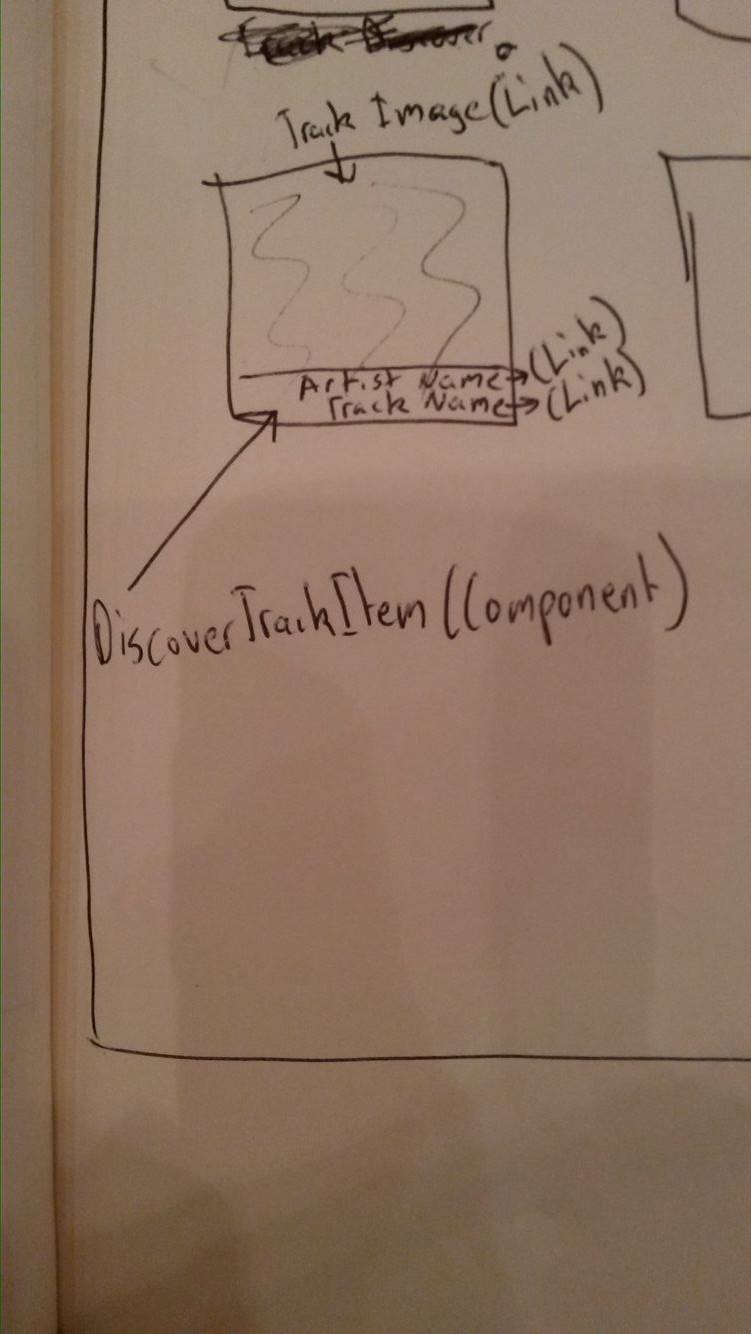 Track Image (Link)
Artist Name → (Link)
Track Name → (Link)
DiscoverTrackItem (Component)